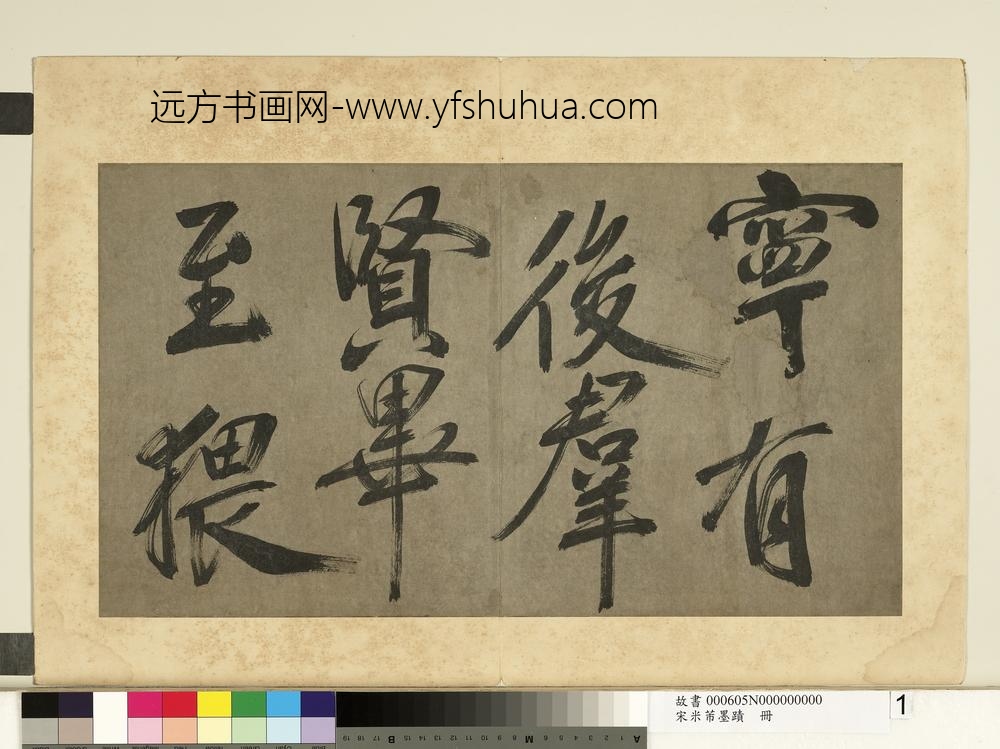 远方书画网-www.yfshuhua.com
寧有
後羣
賢畢
至猥
故書 000605N000000000
宋米芾墨蹟 冊
1